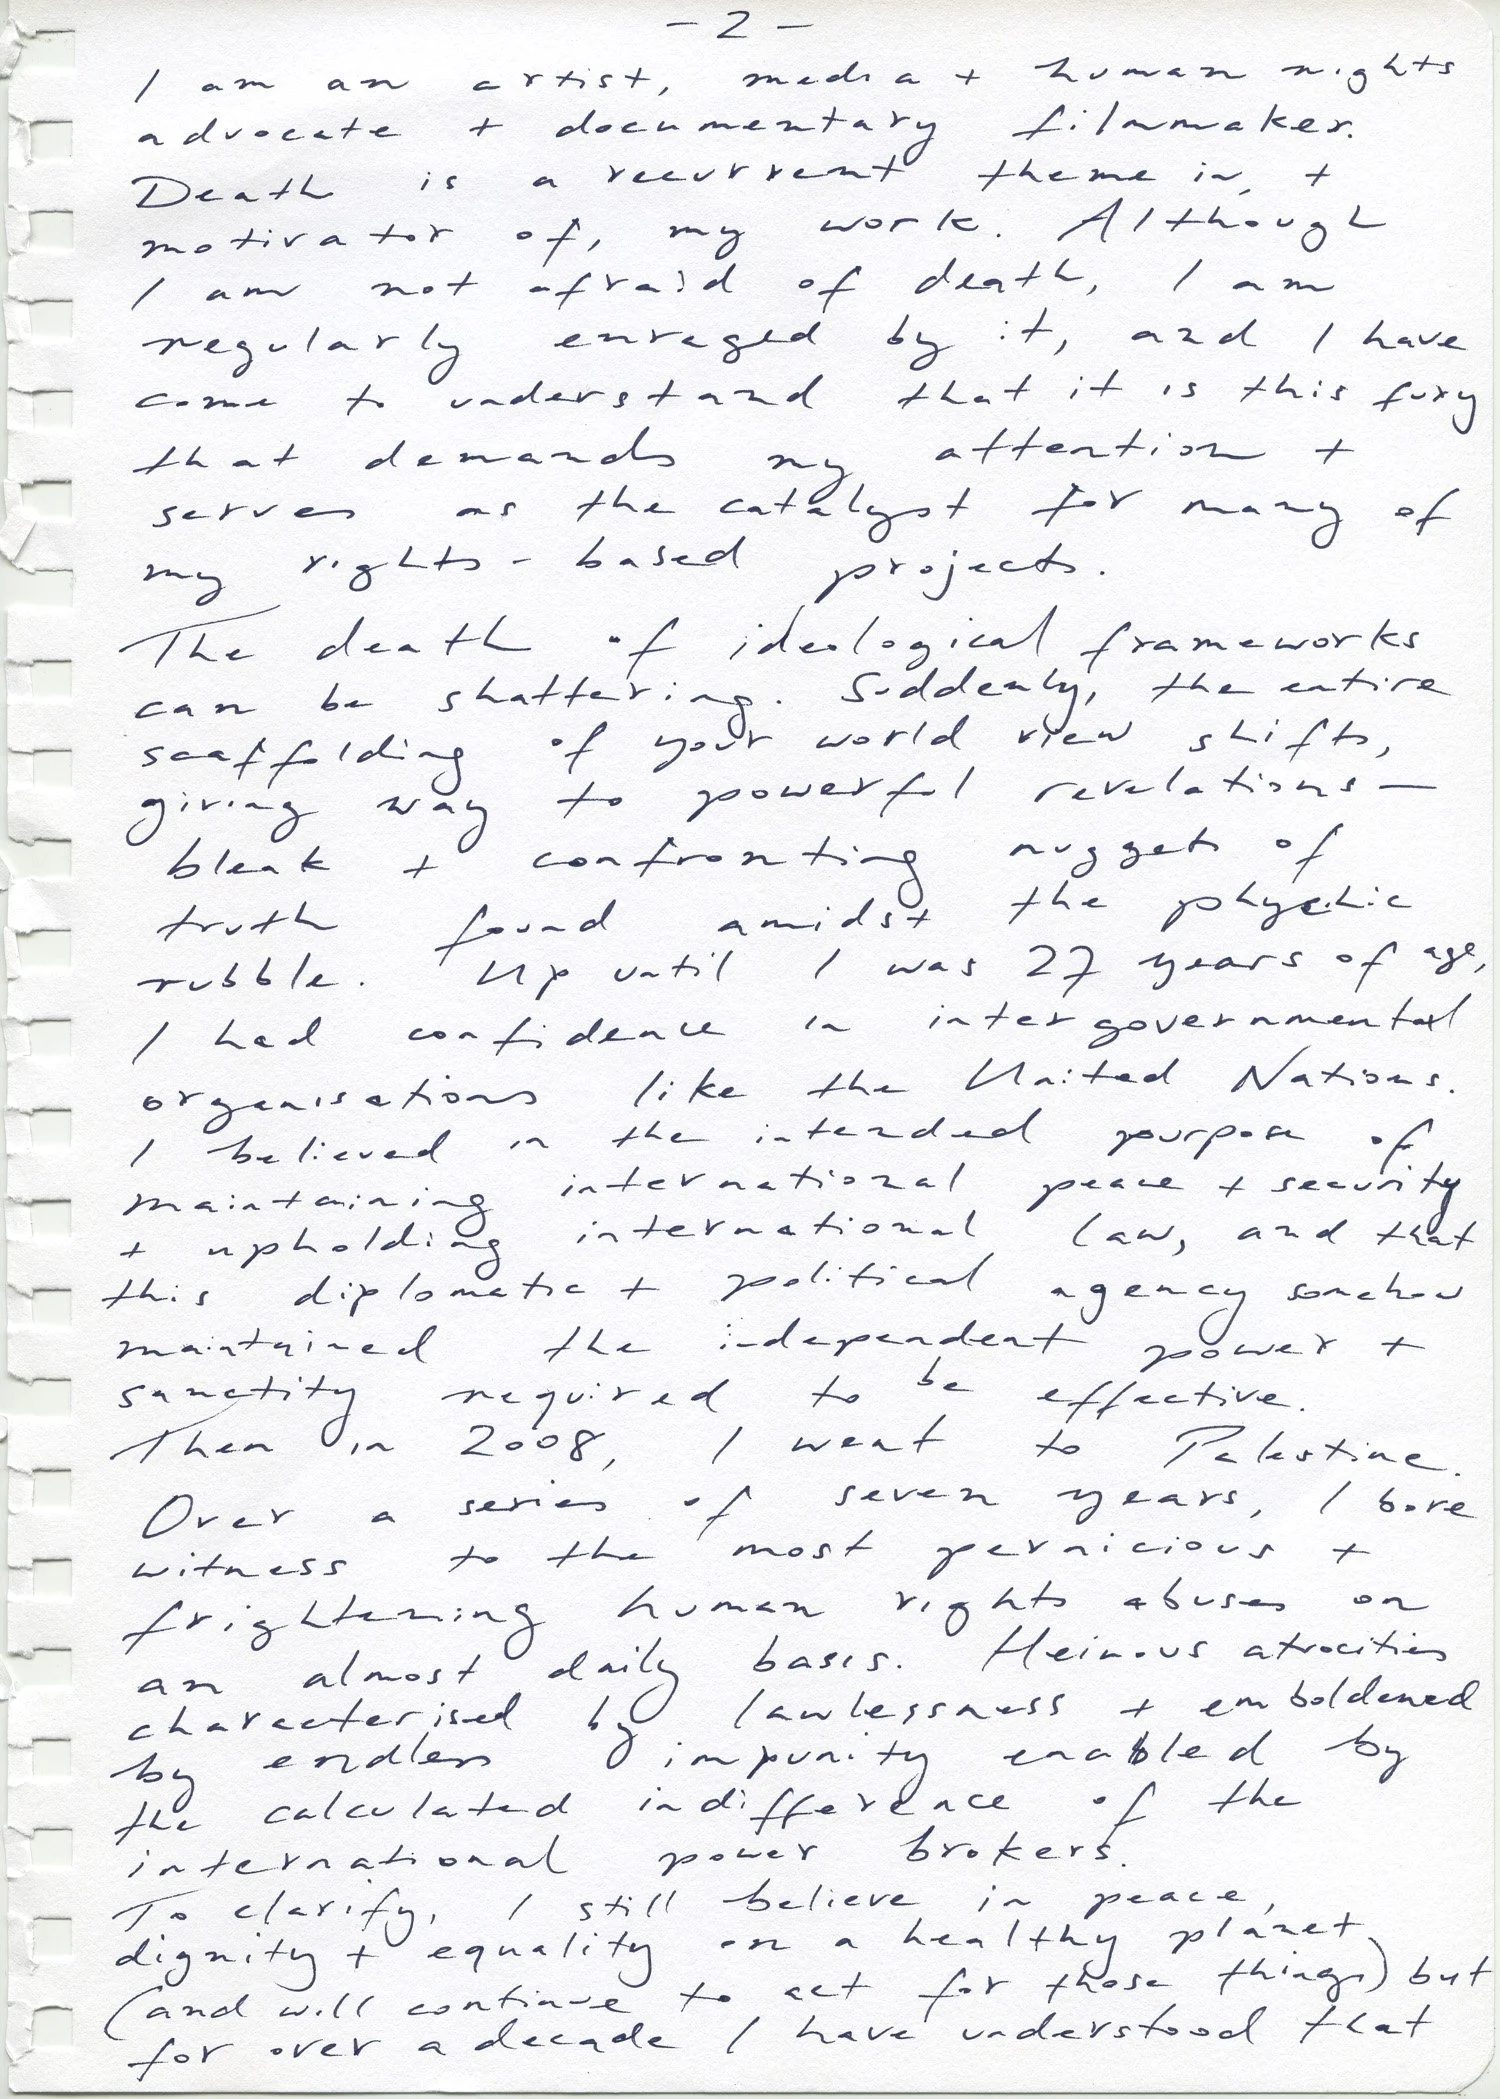 - 2 -
I am an artist, media + human rights
advocate + documentary filmmaker.
Death is a recurrent theme in, +
motivator of, my work. Although
I am not afraid of death, I am
regularly enraged by it, and I have
come to understand that it is this fury
that demands my attention +
serves as the catalyst for many of
my rights-based projects.
The death of ideological frameworks
can be shattering. Suddenly, the entire
scaffolding of your world view shifts,
giving way to powerful revelations —
bleak + confronting nuggets of
truth found amidst the phychic
rubble. Up until I was 27 years of age,
I had confidence in intergovernmental
organisations like the United Nations.
I believed in the intended purpose of
maintaining international peace + security
+ upholding international law, and that
this diplomatic + political agency somehow
maintained the independent power +
sanctity required to be effective.
Then in 2008, I went to Palestine.
Over a series of seven years, I bore
witness to the most pernicious +
frightening human rights abuses on
an almost daily basis. Heinous atrocities
characterised by lawlessness + emboldened
by endless impunity enabled by
the calculated indifference of the
international power brokers.
To clarify, I still believe in peace,
dignity + equality on a healthy planet
(and will continue to act for those things) but
for over a decade I have understood that